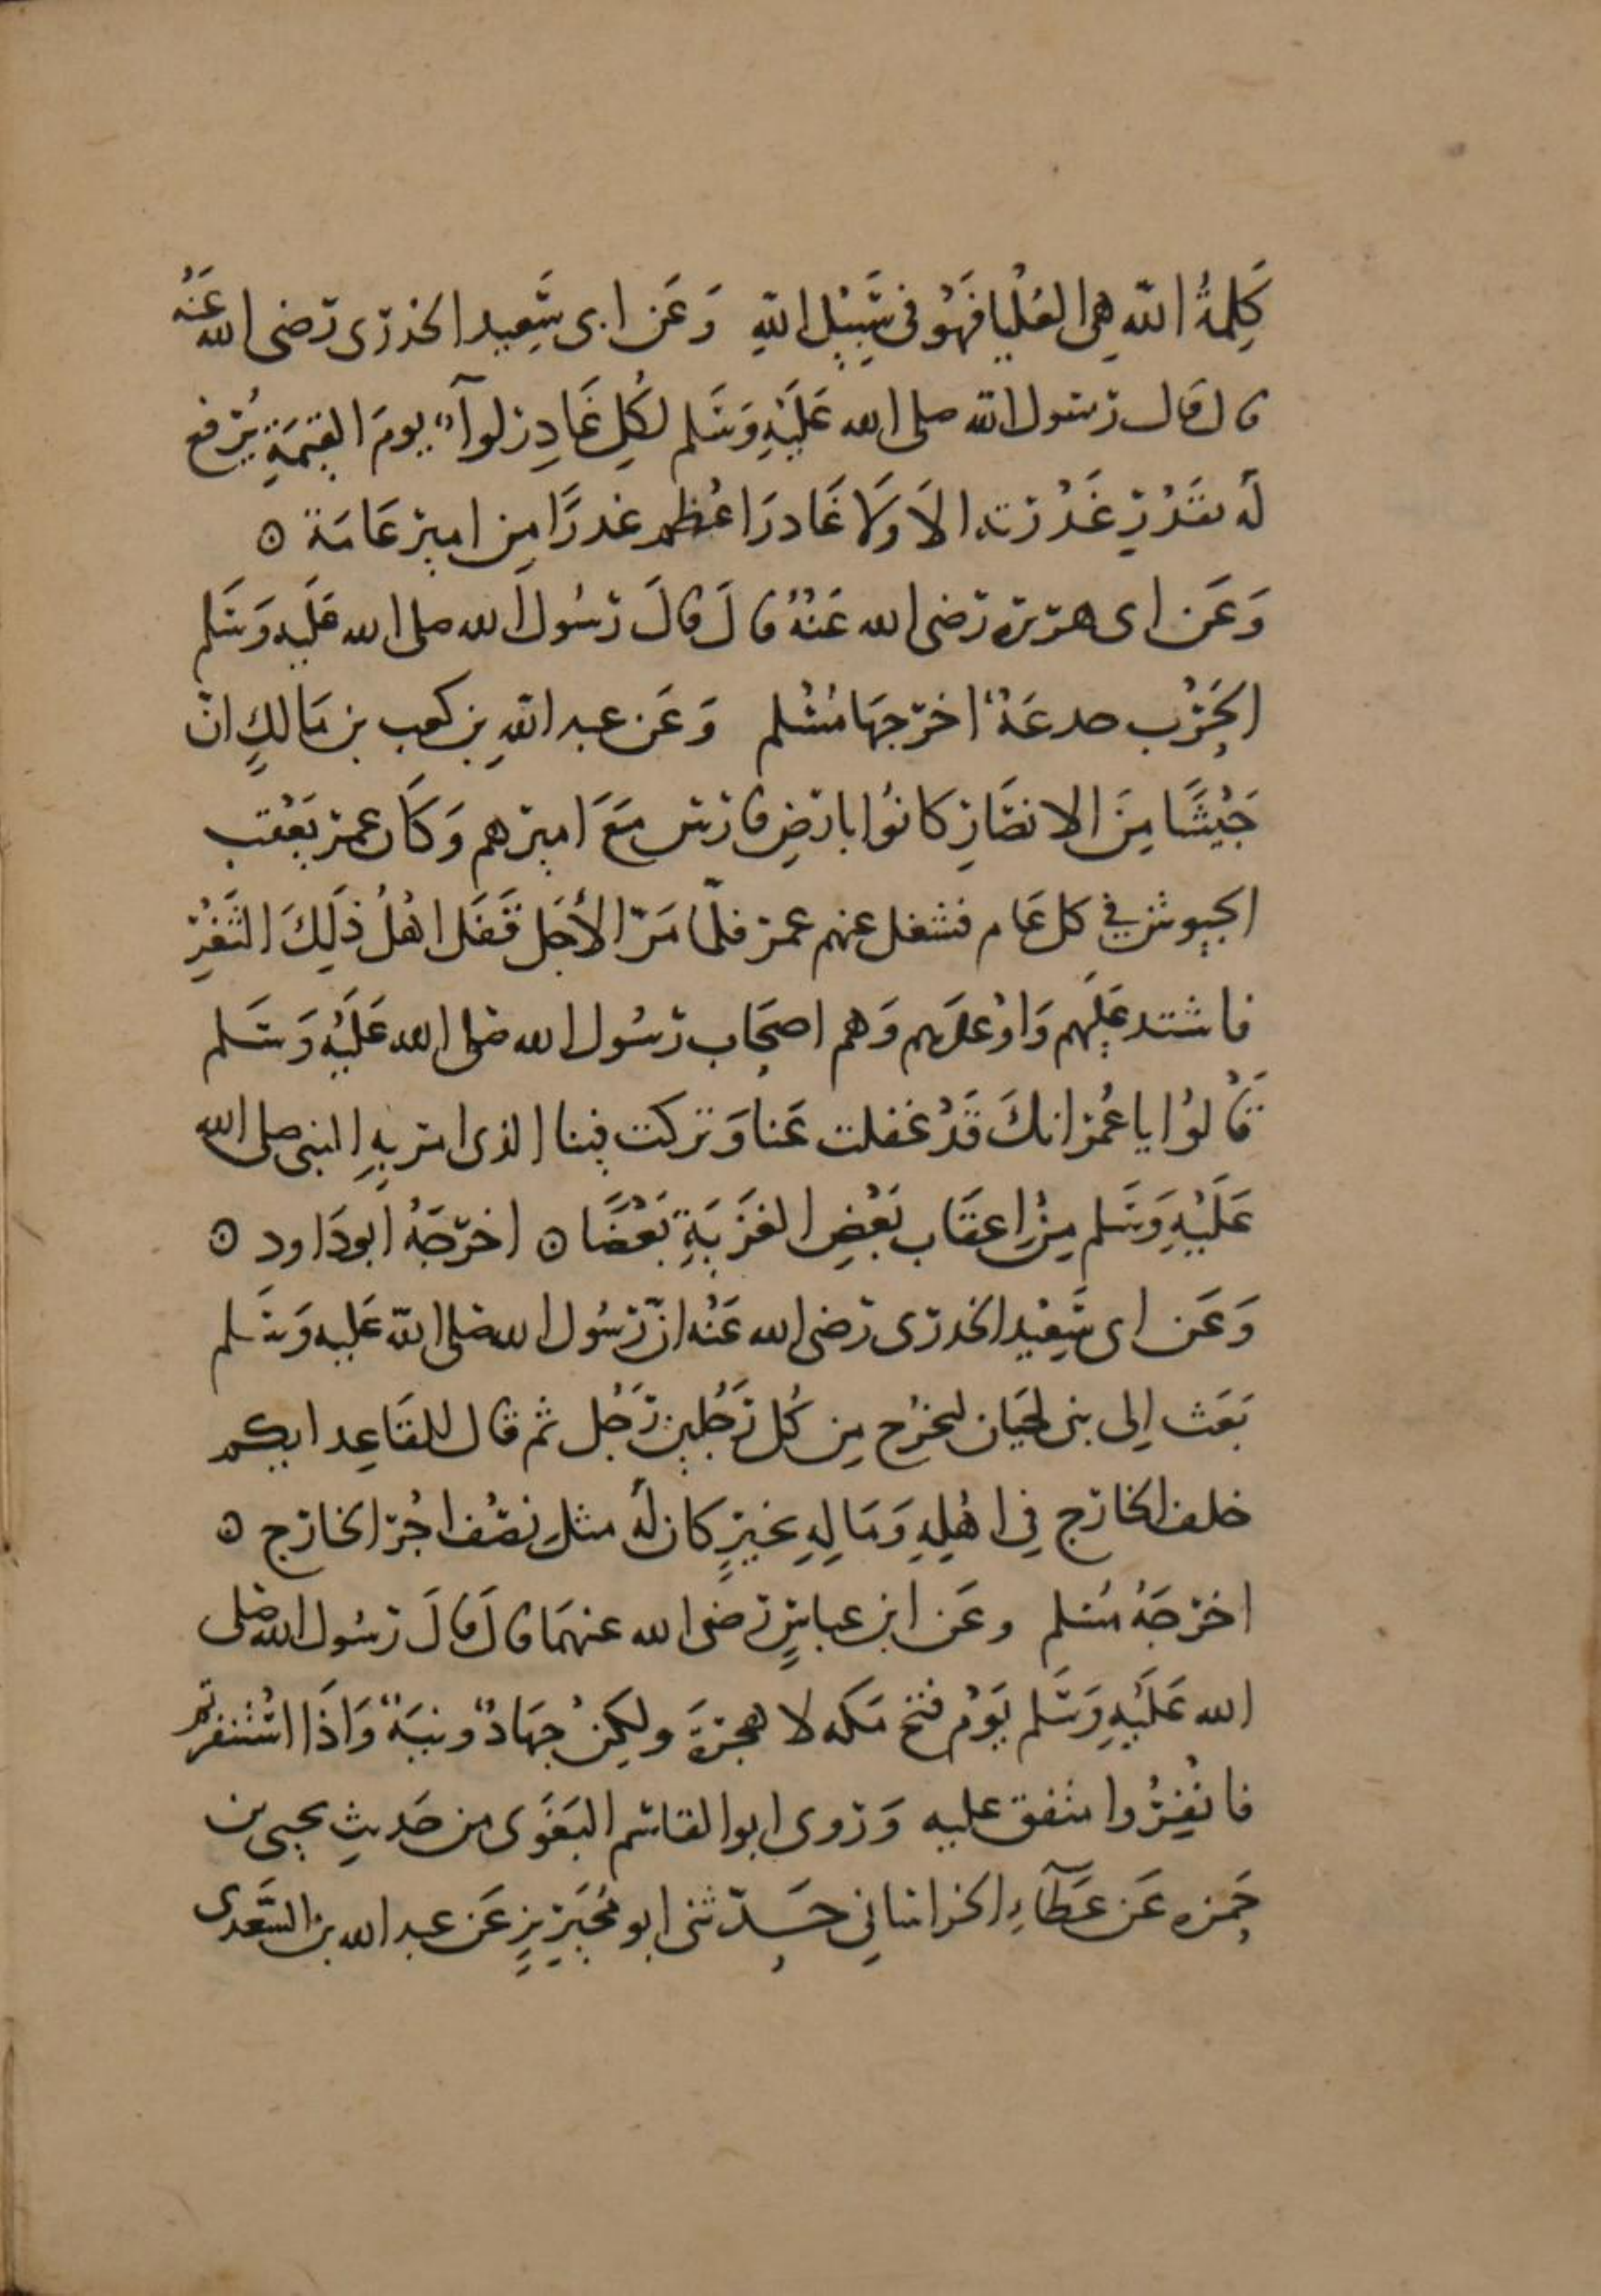 كَلِمةُ اللّه هِى العُلْيا فَهُوَ فى سَبِيْلِ اللّهِ وَعَن ابى سَعِيد الخدرى رَضى الله عَنْهُ
قال قال رسول الله صلى الله عَلَيْهِ وَسَلم لكُلِ غَادِرٍ لوآءٌ يومَ القِيمَةِ يُرفع
لَهُ بقَدْرِ غَدْرته الاَ وَلاَ غَادرَ اعْظم غدرًا مِن امِير عَامَة ۞
وَعَن اى هريرة رَضى الله عَنْهُ قالَ قالَ رَسُول الله صلى الله عَليْه وَسَلم
الحَرْب خدعَةٌ اخرَجهَا مُسْلم وَعَن عبد اللّهِ بن كعب بن مَالكٍ انّ
جَيْشًا مِنَ الانصَارِ كانوُا بارضِ فارس مَعَ اميرهم وَكَان عمر يَعْقب
الجيوش فِي كل عَام فشغل عنهم عمر فلمّا مَرّ الأجَل قَفَل اهْلُ ذَلِكَ الثَغْرِ
فاشتد عَليْهم وَاوْعدَهم وَهم اصحَاب رَسُول الله صَلى الله عَلَيْهِ وَسَلم
قَالوُا يا عُمر انكَ قَدْ غفلت عَنا وَتركت فينا الذى امر بِهِ النبى صلى الله
عَلَيْهِ وَسَلم مِنْ اِعقَاب بَعْضِ الغَزِيَةِ بَعْضًا ۞ اخرّجَهُ ابوُدَاود ۞
وَعَن اى سَعِيْد الخدرى رَضى الله عَنْه انّ رَسُول الله صَلى اللّه عَليه وَسَلم
بَعَث اِلى بنى لحيَان ليخرُج مِن كُل رَجُلين رَجُل ثم قال للقَاعِد ايكم
خلف الخارج فِى اهْلِهِ وَمَالِهِ بخَيرٍ كان لَهُ مثل نصْف اجْر الخارج ۞
اخرجَهُ مُسْلم وعَن ابن عباسٍ رَضى الله عنهمَا قالَ قالَ رَسُول الله صَلى
الله عَلَيْهِ وَسَلم يَوْم فتح مَكه لا هجرَةَ ولكِنْ جهَادٌ ونيَةٌ وَاذَا اسْتُنفرتم
فانْفِرُوا متفق عليه وَرَوى ابو القاسم البَغَوى من حَديثِ يحيى بن
حَمزه عَن عَطآءِ الخراسَانِى حَدّثنى ابو مُحَيْرِيزٍ عَن عبد الله بن السَّعدى